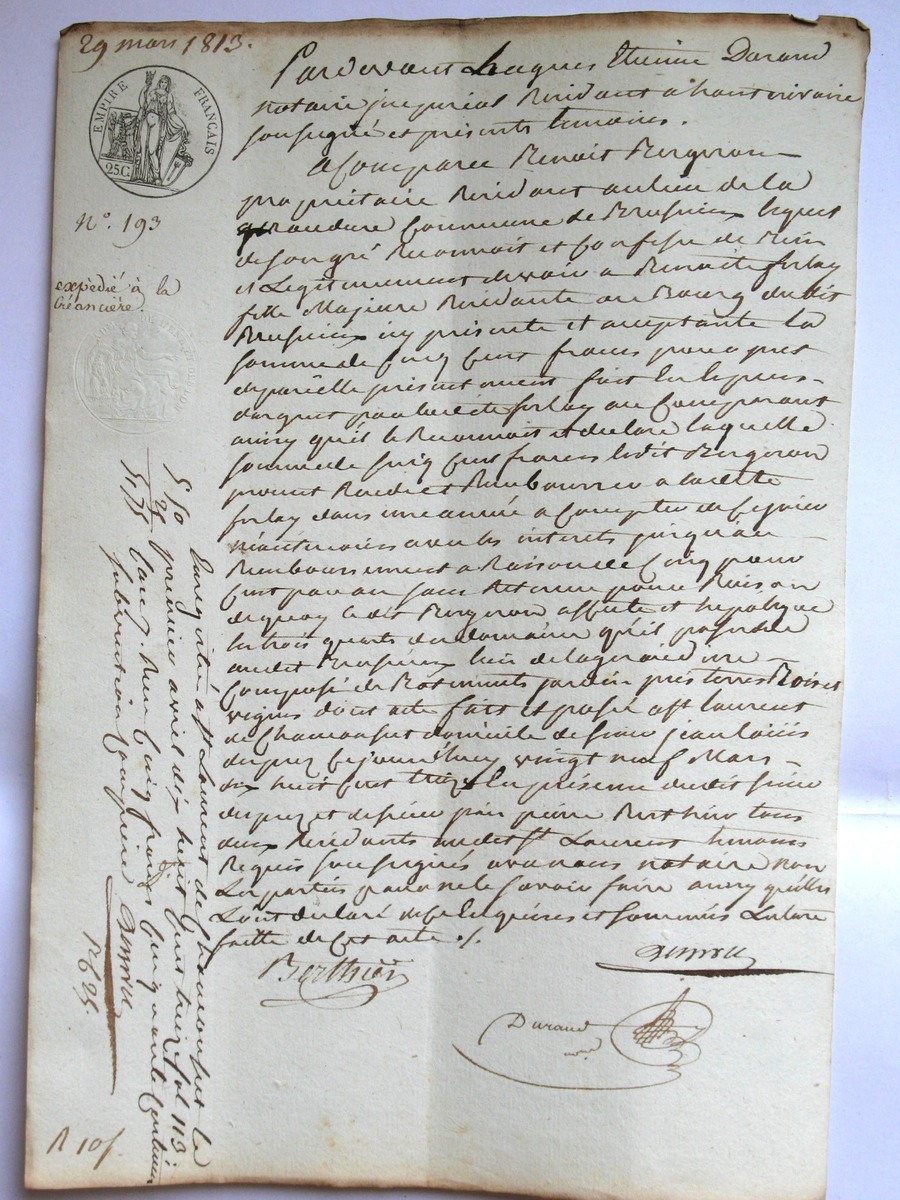 29 mars 1813.
EMPIRE FRANÇAIS
25C.
N°. 193
expédié à la
Créancière.
Pardevant Jacques Etienne Durand
notaire imperial Residant a haut rivoire
soussigné et présents temoins.
A Comparu Benoit Bergeron
propriétaire Residant au lieu de la
giraudiere Commune de Brussieux lequel
de son gré Reconnoit et Confesse de Bien
et Legitimement devoir a Benoite forlay
fille Majeure Residante au Bourg dudit
Brussieux icy présente et acceptante la
somme de Cinq Cent francs pour a pret
de pareille présentement fait En Espèces
d'argent par laditte forlay au Comparant
ainsy qu'il le Reconnoit et declare laquelle
somme de Cinq Cent francs ledit Bergeron
promet Rendre et Rembourser a laditte
forlay dans une année a Compter de Ce jour
neantmoins avec les interets jusqu'au
Remboursement a Raison de Cinq pour
Cent par an sans Retenue pour Raison
de quoy ledit Bergeron affecte et hepoteque
les trois quarts du domaine qu'il possede
audit Brussieux lieu de la giraudiere
Composé de Bâtiments jardin prés terres Bois et
vignes dont acte fait et passé a St laurent
de Chamousset domicile de sieur jean louis
dupuy Cejourd'huy vingt neuf Mars
dix huit Cent treize En présence dudit sieur
dupuy et de sieur pierre Berthier tous
deux Residants audit St Laurent temoins
Requis soussignés avec nous notaire non
Les parties pour ne le savoir faire ainsy qu'elles
L'ont declaré de Ce Enquises et sommées Lecture
faitte de Cet acte ./.
Berthier
Durand
Enregistré a St Laurent de Chamousset le
premier avril dix huit Cent treize fol. 113
Reçu Cinq francs Cinquante Centimes
subvention Comprise
5 50